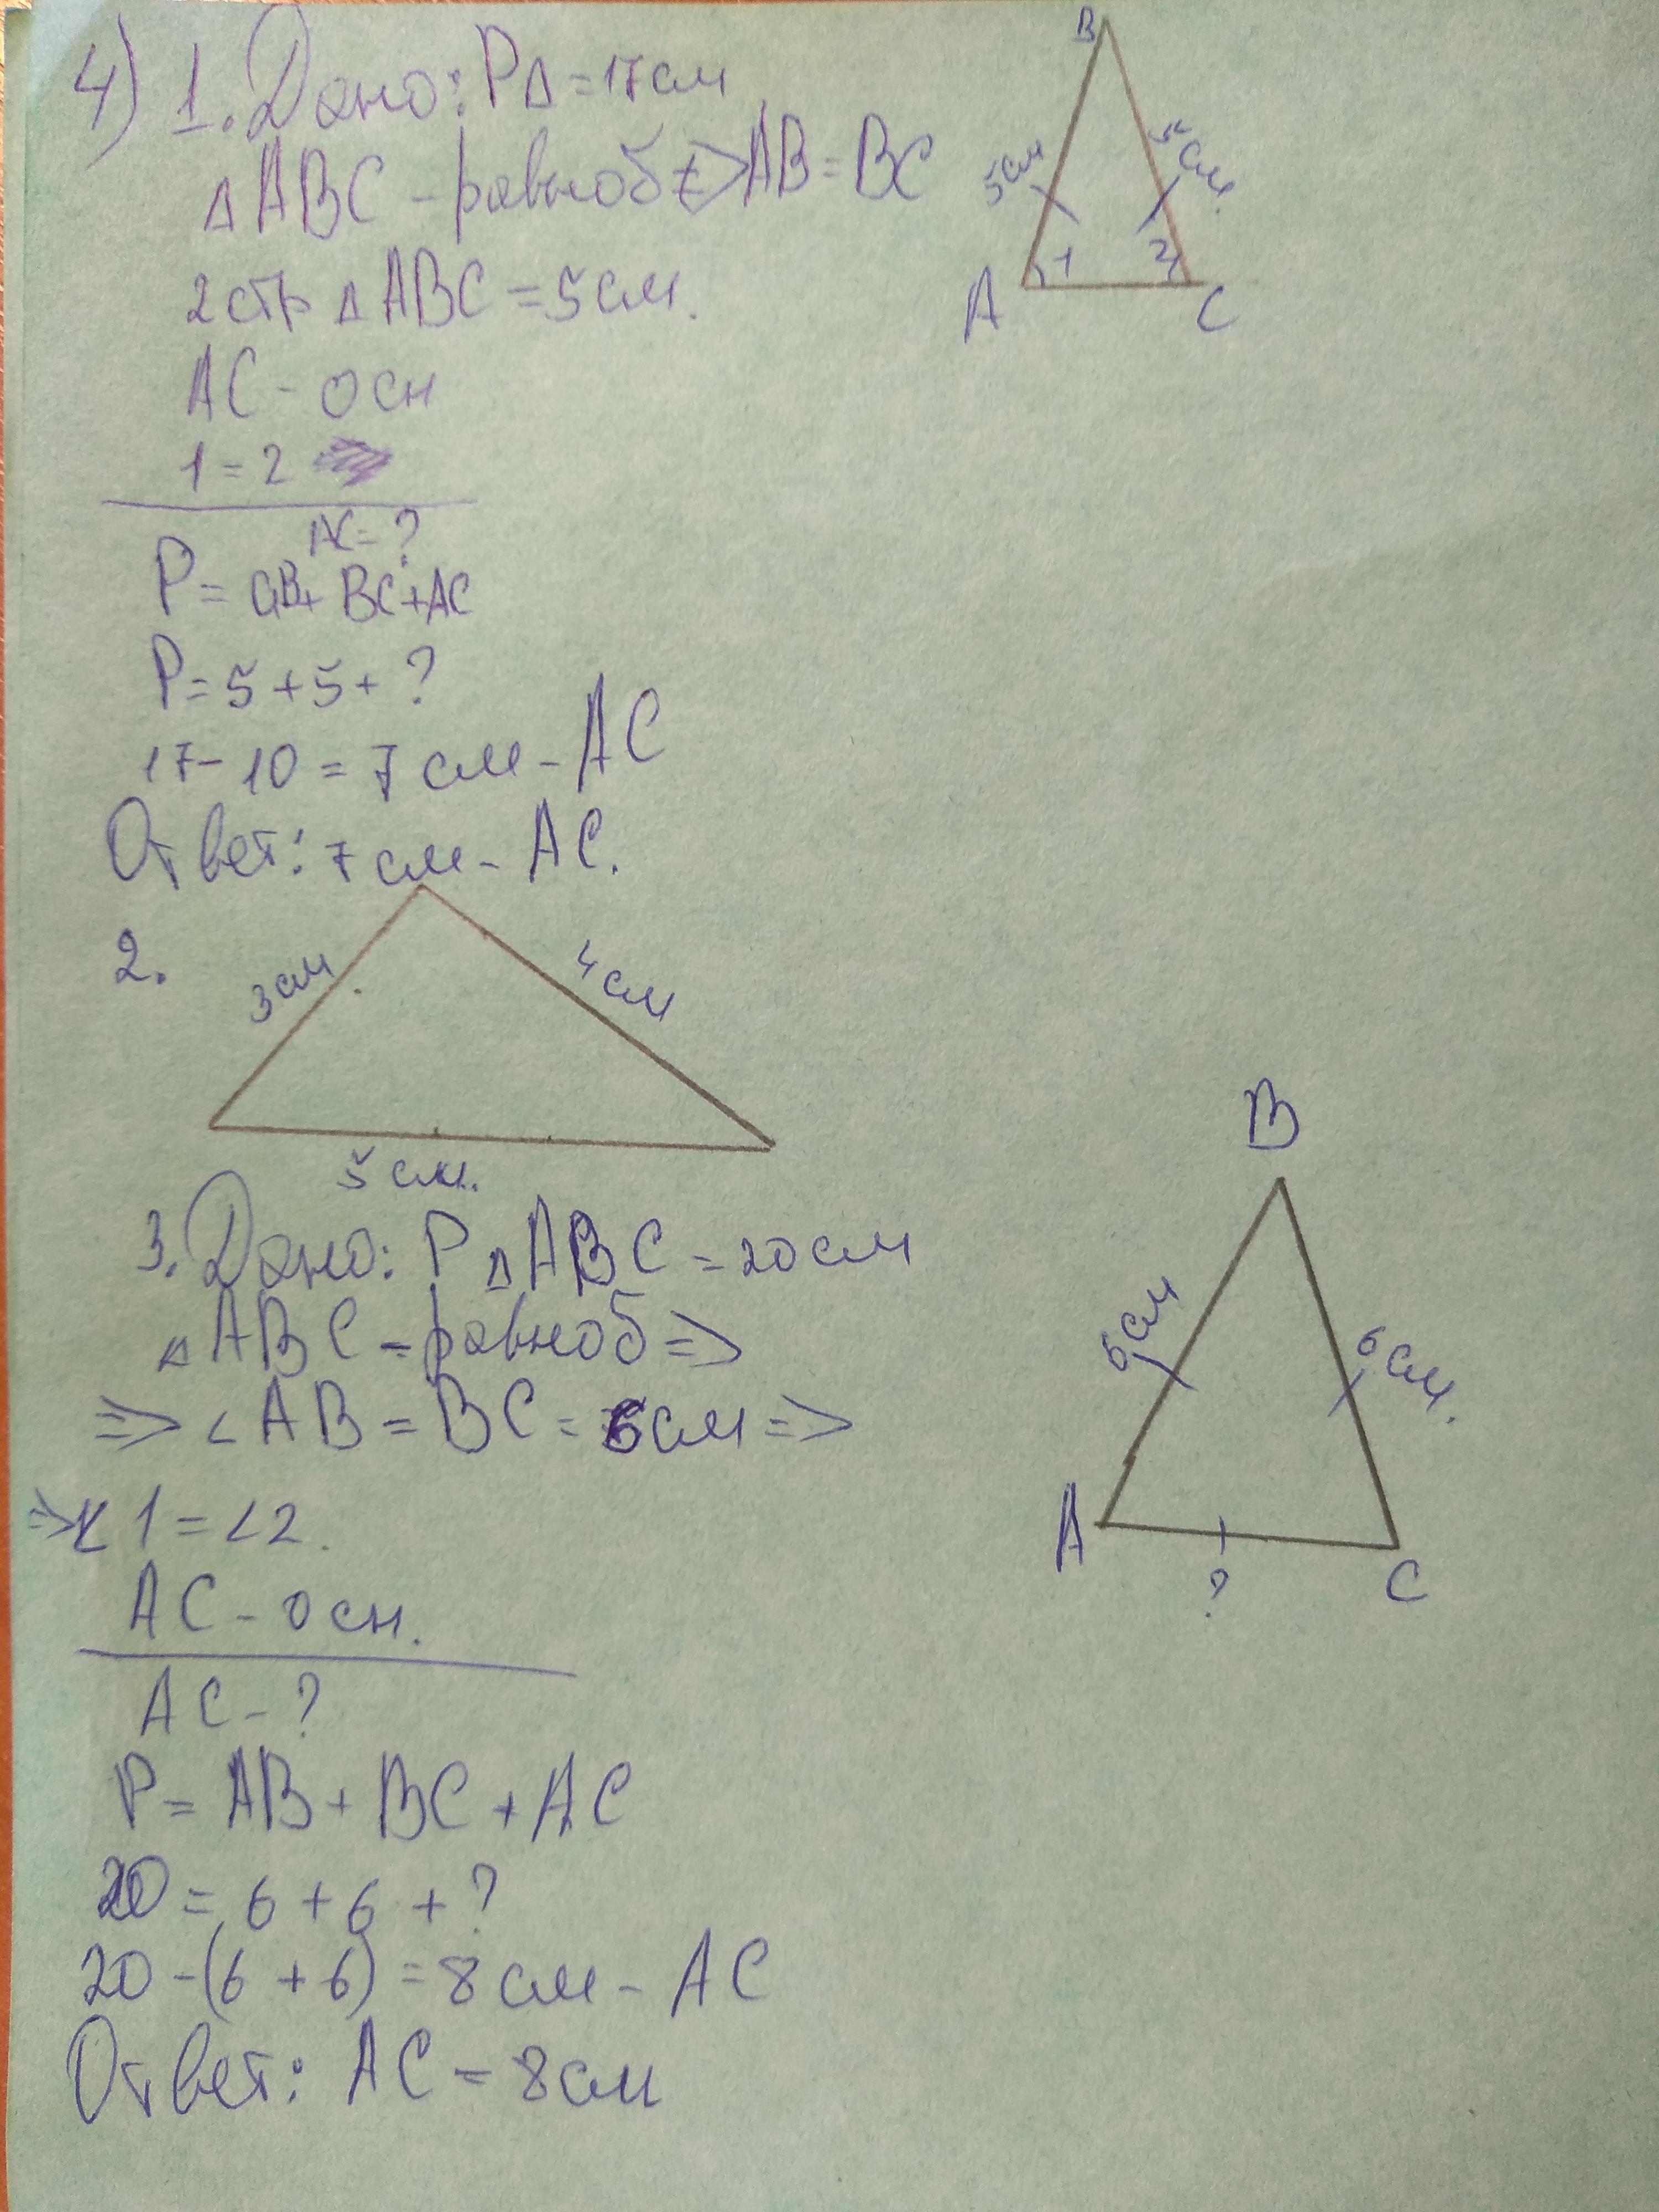 4) 1. Дано: P△ = 17см
△ABC - равноб => AB = BC
2 стр △ABC = 5см.
AC - осн
1 = 2
AC = ?
P = AB + BC + AC
P = 5 + 5 + ?
17 - 10 = 7 см - AC
Ответ: 7 см - AC.
B
5см
5см.
1
2
A
C
2.
3см
4см
5 см.
3. Дано: P △ABC = 20см
△ABC - равноб =>
=> < AB = BC = 6см =>
=> < 1 = < 2.
AC - осн.
AC - ?
P = AB + BC + AC
20 = 6 + 6 + ?
20 - (6 + 6) = 8 см - AC
Ответ: AC = 8см
B
6см
6см.
A
?
C